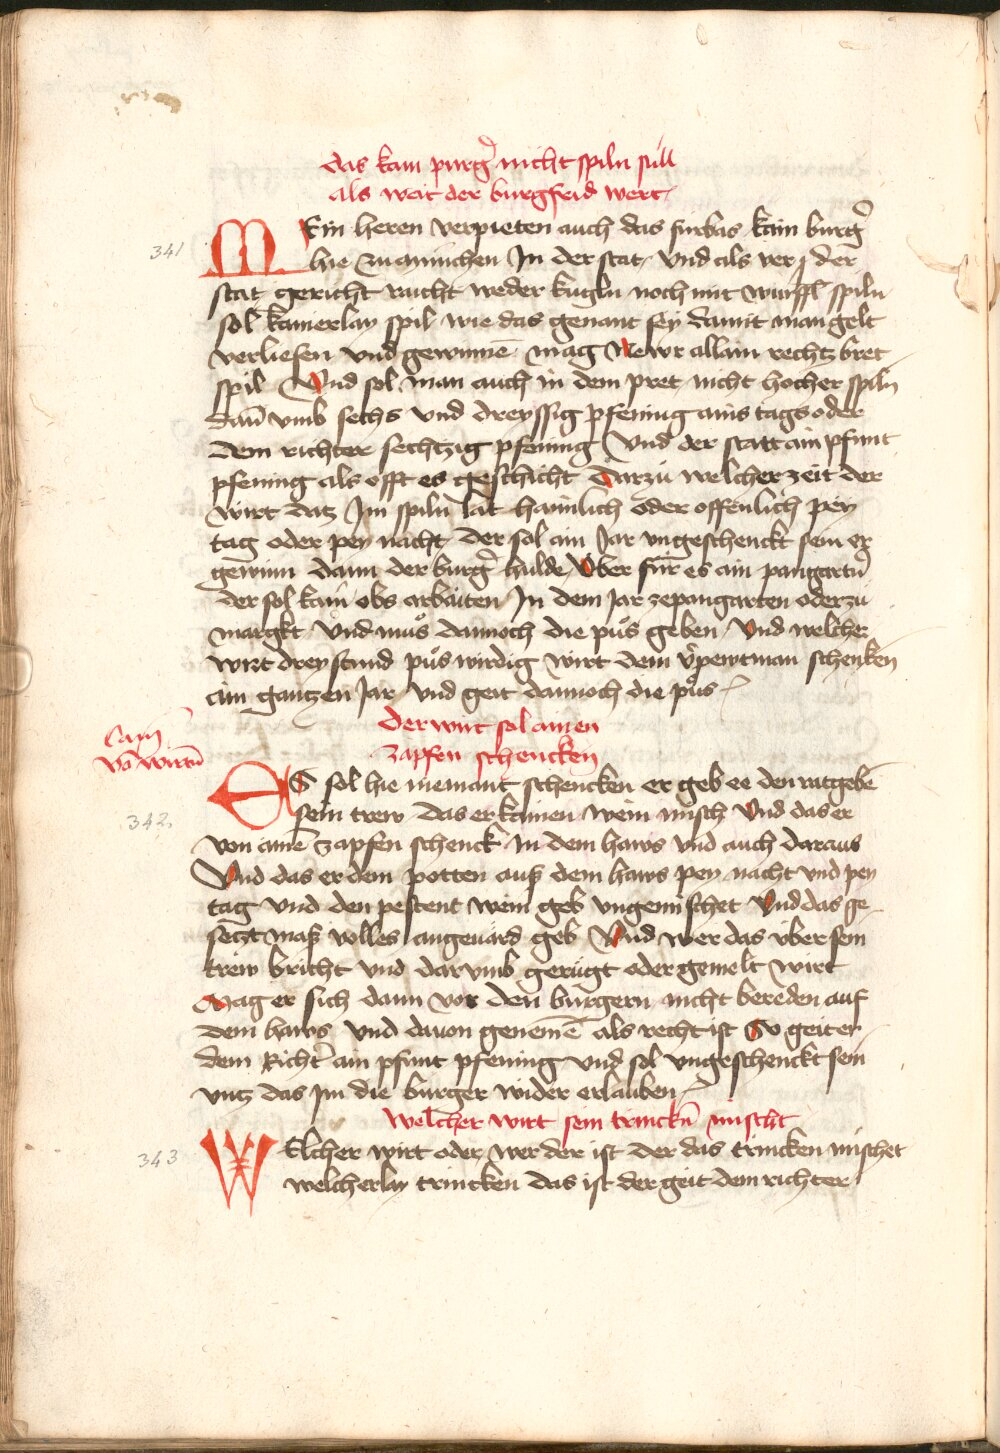 das kain purg̉ nicht spiln sull
als weit der burgfrid wert
341
MEin heren verpieten auch das furbas kain burg̉
hie zu münichen In der stat Und als verr der
stat gericht raicht weder kugln noch mit wurffl spiln
sol kainerlay spil wie das genant sey damit man gelt
verliesen und gewinnē mag Newr allain rechtz bret
spil Und sol man auch in dem pret nicht hocher spiln
dañ umb sechs und dreyssig pfening ains tags oder
dem richter sechtzig pfening Und der statt ain pfunt
pfening als offt es geschicht Darzu welcher zeit der
wirt datz Im spiln lat haimlich oder offenlich pey
tag oder pey nacht der sol ain Jar ungeschenckt sein er
gewinn dann der burg̉ hulde Uber für es ain pangartñ
der sol kain obs arbaiten In dem Jar ze pangarten oder zu
margkt Und mus dannoch die pus geben Und welcher
wirt dreystund pus wirdig wirt dem v̉pewtman schenken
ain gantzen Jar und geit dannoch die pus
der wirt sol ainen
zapfen schencken
Cam
vō wirtñ
342
ES sol hie niemant schencken er geb ee den ratgebē
sein trew das er kainen wein misch Und das er
von ainē zapfen schenck in dem haws und auch daraus
Und das er dem potten auß dem haws pey nacht und pey
tag und den pestent wein geb ungemischet Und das ge
setzt maß volles angeuard geb Und wer das über sein
trew bricht und darumb gerügt oder gemelt wirt
Mag er sich dann vor den burgern nicht bereden auf
dem haws und dauon genemē als recht ist So geit er
dem Richt̉ ain pfunt pfening und sol ungeschenckt sein
untz das im die burger wider erlauben
Welcher wirt sein trinckñ mischt
343
WElcher wirt oder wer der ist der das trincken mischet
welcherlay trincken das ist der geit dem richter